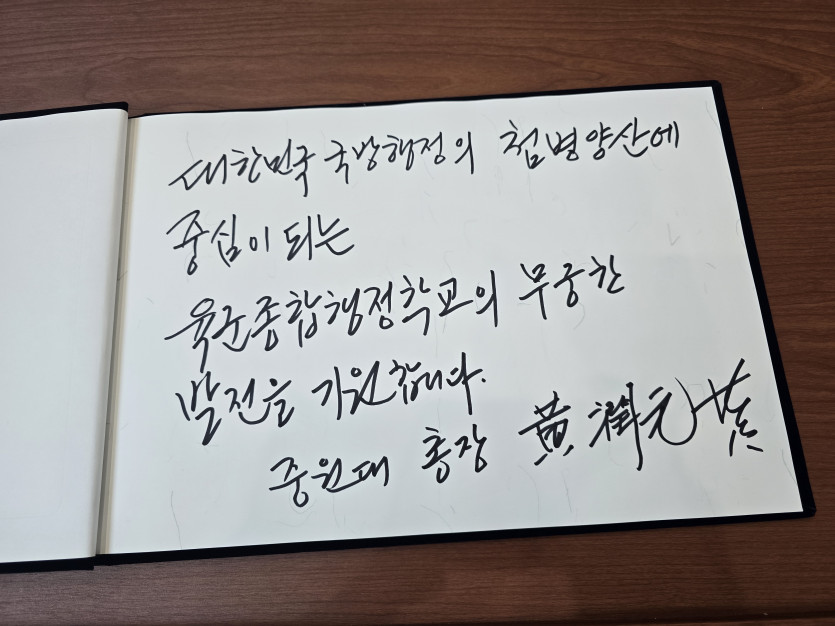 대한민국 국방행정의 첨병양산에
중심이 되는
육군종합행정학교의 무궁한
발전을 기원합니다.
중원대 총장 黃潤元